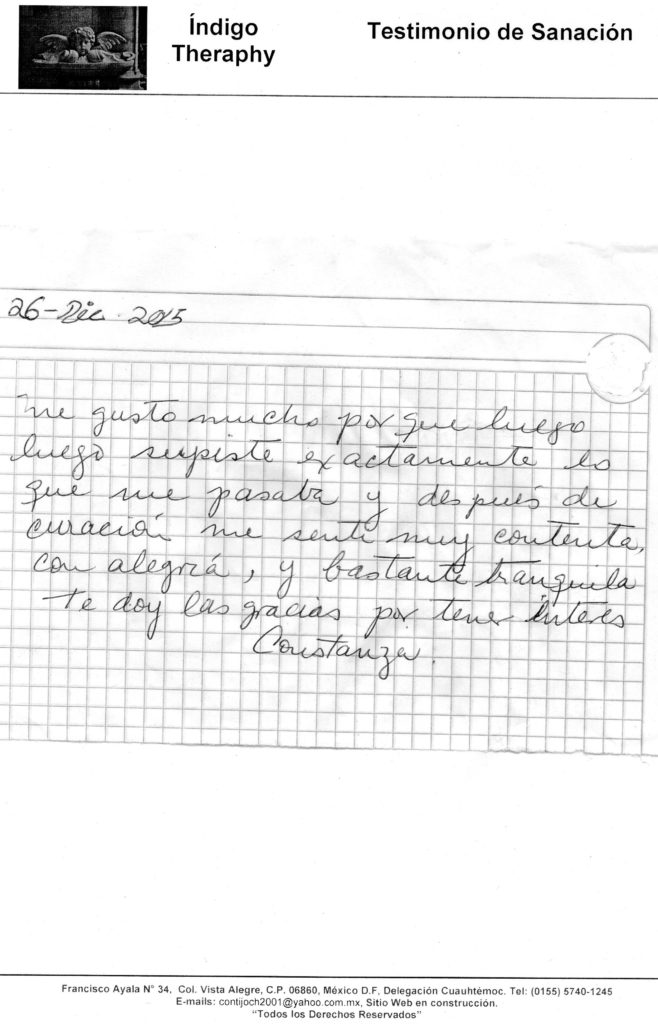 Índigo
Theraphy
Testimonio de Sanación
26-Dic. 2015
me gusto mucho por que luego
luego supiste exactamente lo
que me pasaba y después de
curación me senti muy contenta,
con alegría, y bastante tranquila
Te doy las gracias por tener interes
Constanza.
Francisco Ayala N° 34, Col. Vista Alegre, C.P. 06860, México D.F, Delegación Cuauhtémoc. Tel: (0155) 5740-1245
E-mails: contijoch2001@yahoo.com.mx, Sitio Web en construcción.
"Todos los Derechos Reservados"